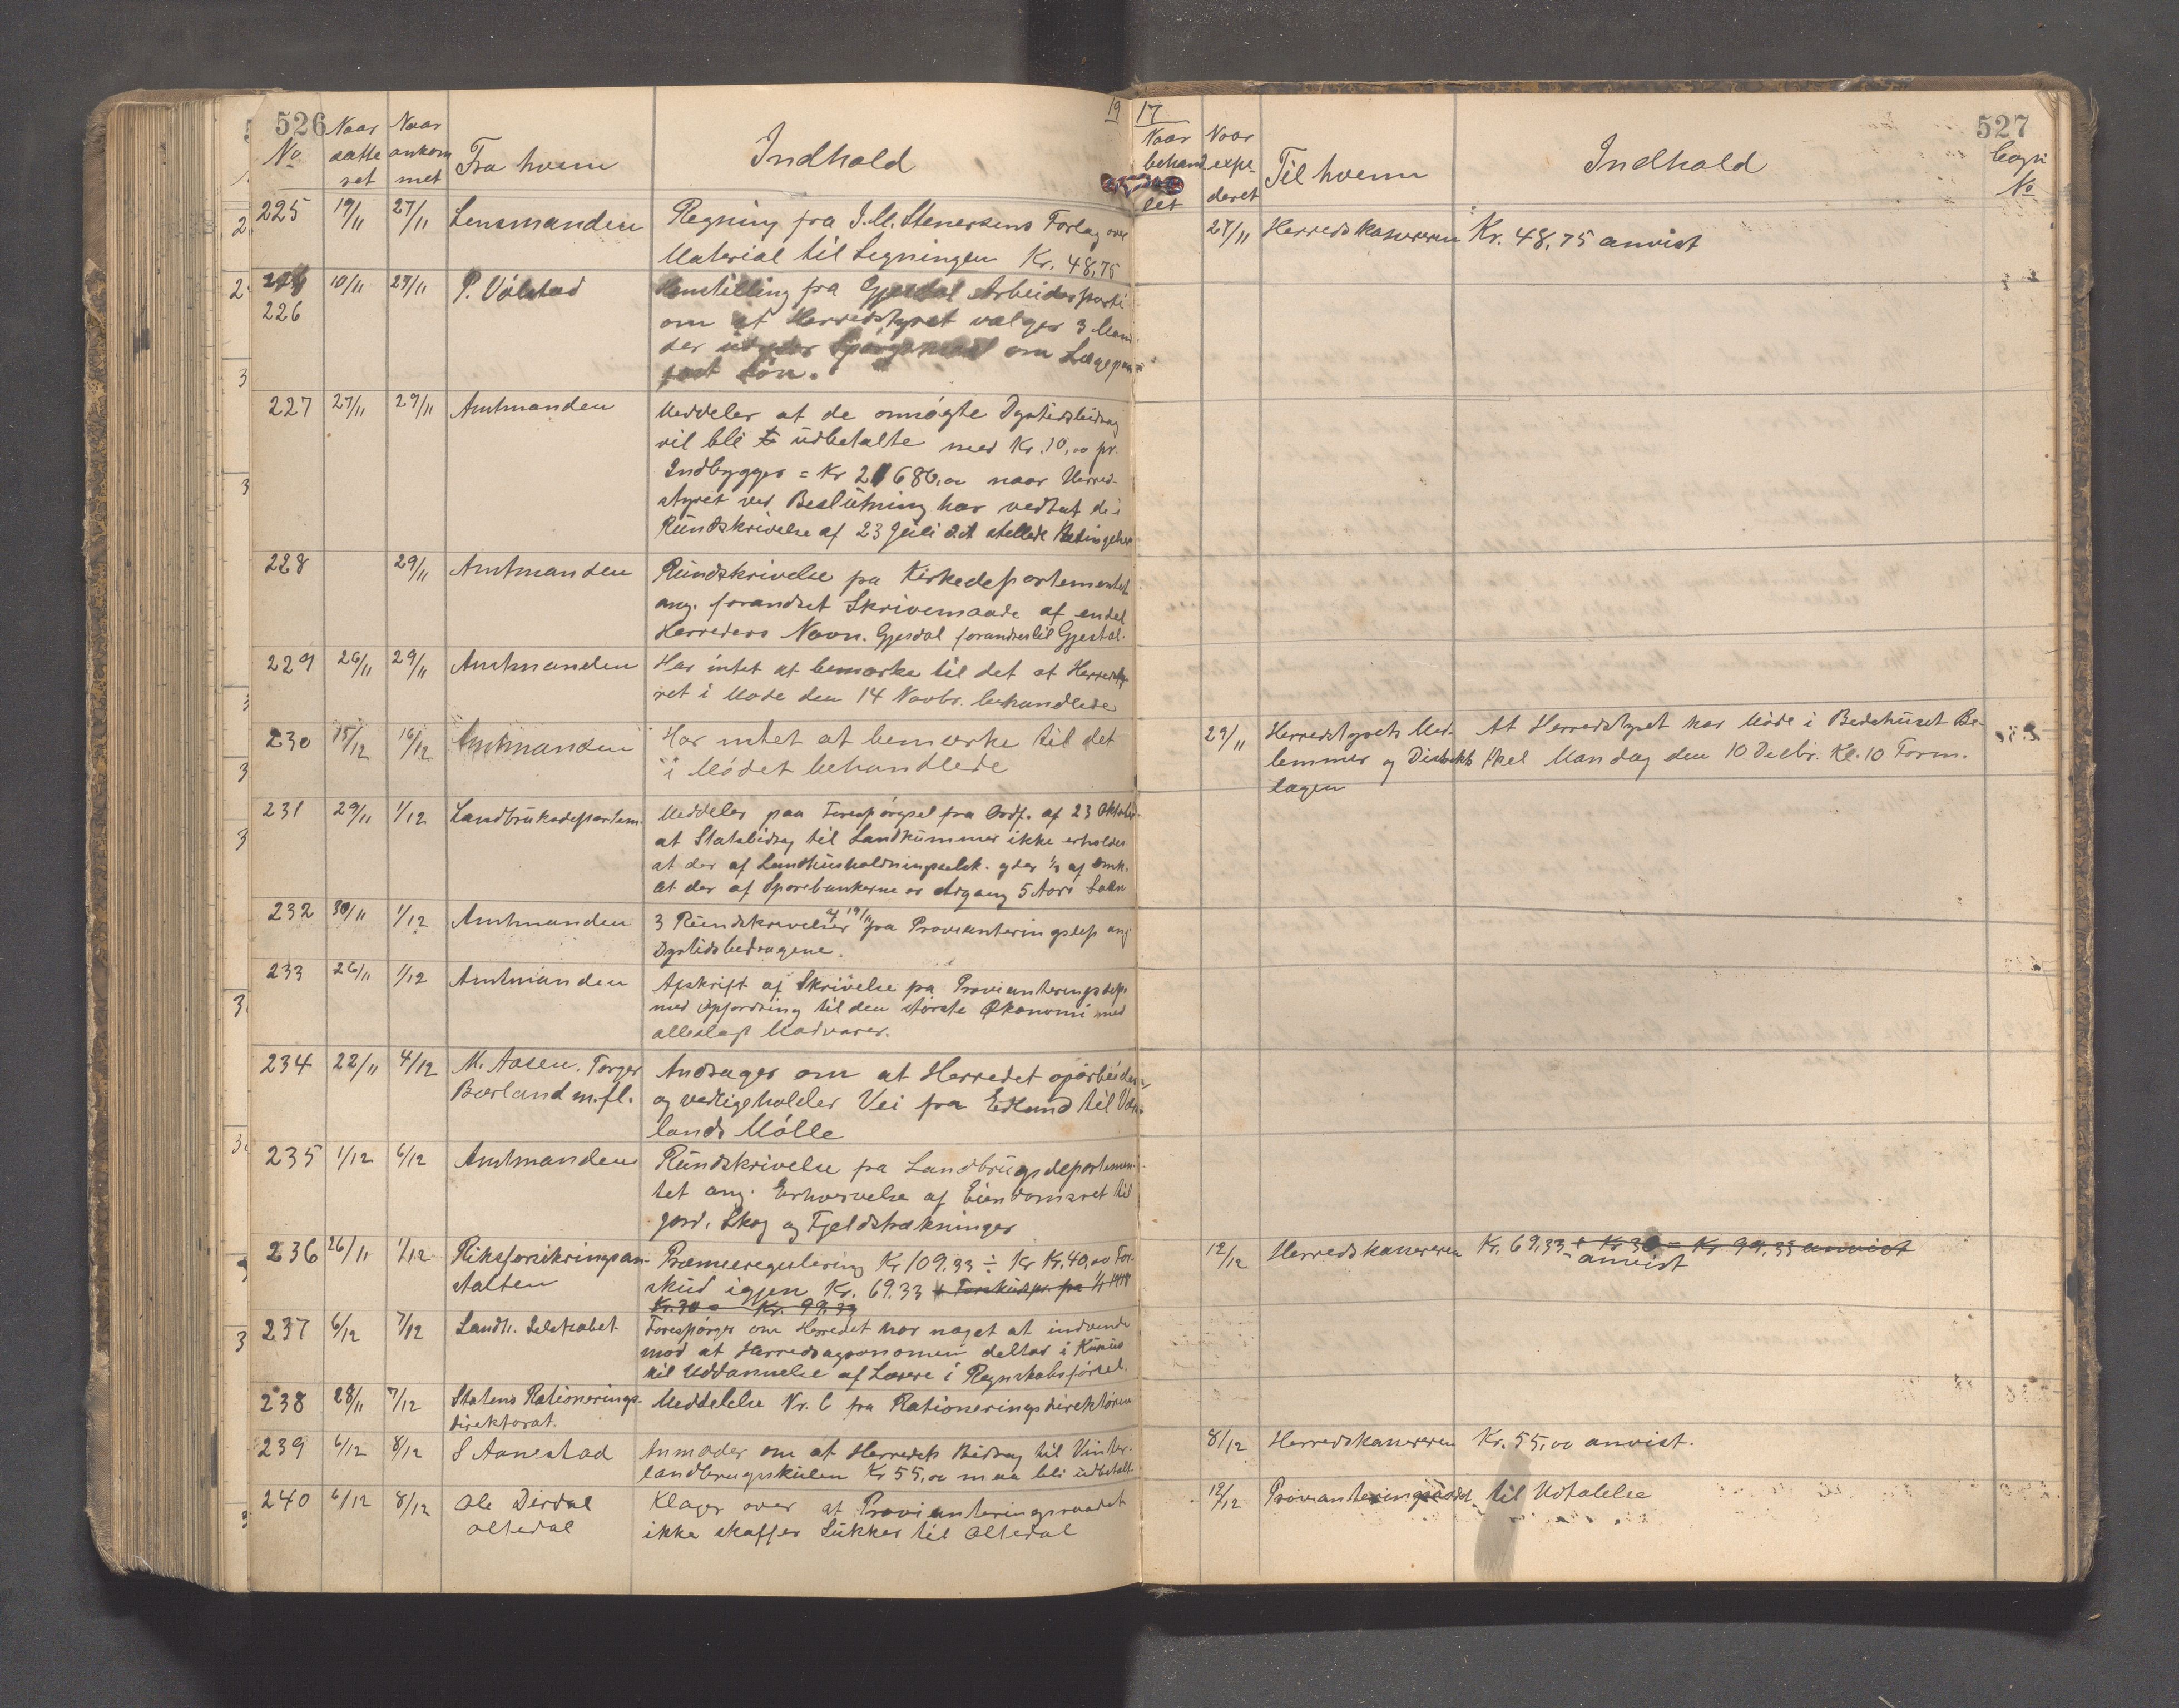 526
19
No
Naar datteret
Naar ankommet
Fra hvem
Indhold
225 19/11 27/11 Lensmanden Regning fra J. M. Stenersens Forlag over
Material til Ligningen Kr. 48,75
226 10/11 27/11 P. Vølstad Henstilling fra Gjesdal Arbeiderparti
om at Herredstyret vælger 3 Mæn
der Spørgsmaal om Læge paa
fast Løn.
227 27/11 29/11 Amtmanden Meddeler at de ansøgte Dyrtidsbidrag
vil bli udbetalte med Kr. 10,00 pr.
Indbygger = Kr 21680,00 naar Herred-
styret ved Beslutning har vedtat de i
Rundskrivelse af 23 Juli d.å. stillede Betingelser
228 29/11 Amtmanden Rundskrivelse fra Kirkedepartementet
ang. forandret Skrivemaade af endel
Herreders Navn. Gjesdal forandres til Gjestal.
229 26/11 29/11 Amtmanden Har intet at bemærke til det at Herredsty-
ret i Møde den 14 Novbr. behandlede
230 15/12 16/12 Amtmanden Har intet at bemærke til det
i Mødet behandlede
231 29/11 1/12 Landbruksdepartem. Meddeler paa Forespørgsel fra Ordf. af 23 Oktober
at Statsbidrag til Landkummer ikke erholdes
at der af Landhusholdningselsk. ydes 1/3 af Omk.
at der af Sparebankerne er Adgang 5 Aars Laan
232 30/11 1/12 Amtmanden 3 Rundskrivelser af 19/11 fra Provianteringsdep ang
Dyrtidsbidragene.
233 26/11 1/12 Amtmanden Afskrift af Skrivelse fra Provianteringsdep.
med Opfordring til den største Økonomi med
alleslags Madvarer.
234 22/11 4/12 M. Aasen, Torger Andrager om at Herredet oparbeider
Bærland m.fl. og vedligeholder Vei fra Edland til
lands Mølle
235 1/12 6/12 Amtmanden Rundskrivelse fra Landbrugsdepartemen-
tet ang. Erhvervelse af Eiendomsret til
Jord, Skog og Fjeldstrækninger
236 26/11 1/12 Riksforsikringsan- Præmieregulering Kr 109.33 ÷ Kr Kr. 40,00 For-
stalten skud igjen Kr. 69.33 + Forskudspr. fra 1/1 1918
Kr. 30 = Kr. 99.33
237 6/12 7/12 Landh. Selskabet Forespørger om Herredet har noget at indvende
mod at Herredsagronomen deltar i Kursus
til Uddannelse af Lærere i Regnskabsførsel.
238 28/11 7/12 Statens Rationerings- Meddelelse Nr. 6 fra Rationeringsdirektøren
direktorat.
239 6/12 8/12 S Aanestad Anmoder om at Herredets Bidrag til Vinter-
landbrugsskulen Kr 55,00 maa bli udbetalt
240 6/12 8/12 Ole Dirdal Klager over at Provianteringsraadet
Oltedal ikke skaffer Sukker til Oltedal
17
527
Naar behandlet
Naar expederet
Til hvem
Indhold
No
27/11 Herredskassereren Kr. 48,75 anvist
29/11 Herredstyrets Med- At Herredstyret har Møde i Bedehuset Be-
lemmer og Distrikts thel Mandag den 10 Decbr. Kl. 10 Form.
lægen
12/12 Herredskassereren Kr. 69,33 + Kr 30 = Kr 99.33 anvist
anvist
8/12 Herredskassereren Kr. 55,00 anvist.
12/12 Provianteringsraadet til Udtalelse